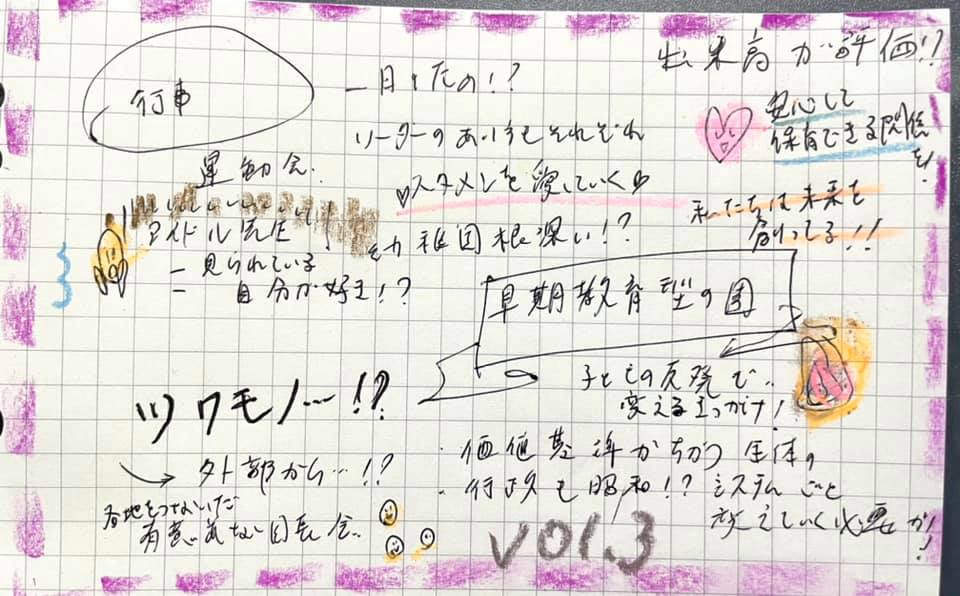 行事
一目したの!?
出来高が評価!?
リーダーのあいさもそれぞれ
安心して
保育できる関係
を!
運動会.
♡スタメンを愛していく♡
私たちは未来を
創ってる!!
アイドル先生
幼稚園根深い!?
見られている
自分が好き!?
早期教育型の園
子どもの反発で..
変えるきっかけ!
ツワモノ…!?
外部から…!?
価値基準がちがう 全体の
行政も昭和!? システムごと
変えていく必要が!!
各地をつないだ
有意義な園長会..
vol.3